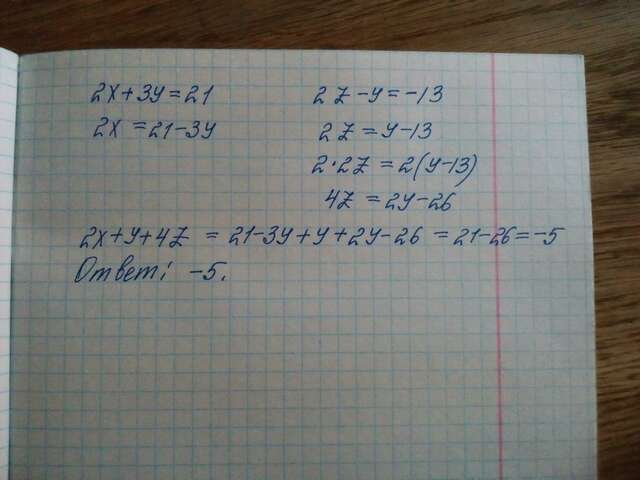 2x+3y=21
2x=21-3y
2z-y=-13
2z=y-13
2·2z=2(y-13)
4z=2y-26
2x+y+4z=21-3y+y+2y-26=21-26=-5
Ответ: -5.